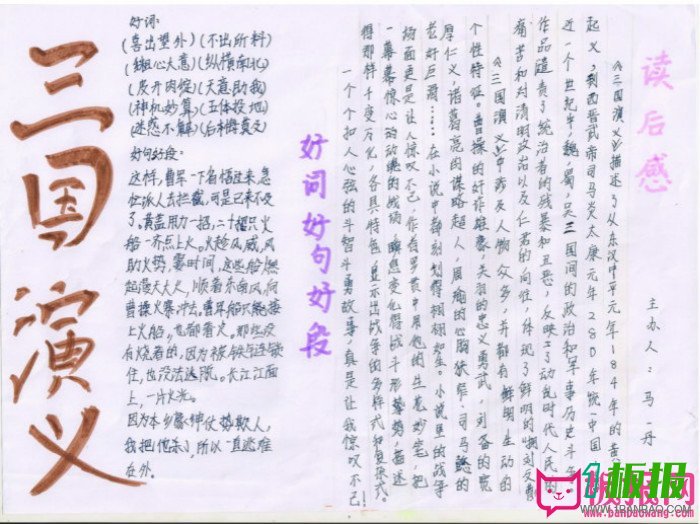 三国演义
好词:
(喜出望外)(不出所料)
(粗心大意)(纵横南北)
(皮开肉绽)(天意助我)
(神机妙算)(五体投地)
(迷惑不解)
好句好段:
这样,曹军一下省悟过来,急
忙派人去拦截,可是已来不及
了。黄盖用力一招,二十艘只火
船一齐点上火。火趁风威,风
助火势,霎时间,这些船燃
起漫天大火,顺着东南风向
曹操火寨冲去。曹军船只能接
上火船,也都着火。那些没
有烧着的,因为被铁与连锁
住,也没法逃脱。长江江面
上,一片火光。
因为本乡豪绅仗势欺人,
我把他杀了,所以一直逃难
在外。
好词好句好段
读后感
主办人:马一丹
《三国演义》描述了从东汉中平元年184年的黄
起义,到西晋武帝司马炎太康元年280年统一中国
近一个世纪中,魏、蜀、吴三国间的政治和军事历史斗争
作品谴责了统治者的残暴和丑恶,反映了动乱时代人民的
痛苦和对清明政治以及仁君的向往,体现了鲜明的
《三国演义》中涉及人物众多,并都有鲜明生动的
个性特征。曹操的奸诈雄豪,关羽的忠义勇武,刘备的宽
厚仁义,诸葛亮的谋略超人,周瑜的心胸狭窄、司马懿的
老奸巨滑……在小说中都刻划得栩栩如生。小说里的战争
场面更是让人惊叹不已,作者罗贯中用他的生花妙笔,把
一幕幕惊心动魄的战场,瞬息变化得战斗形势,描述
得那样千变万化,各具特色,显示出战争的多样式和复杂式。
一个个扣人心弦的斗智斗勇故事,真是让我惊叹不已!
板报网
WWW.1BANBAO.COM
www.banbaowang.com